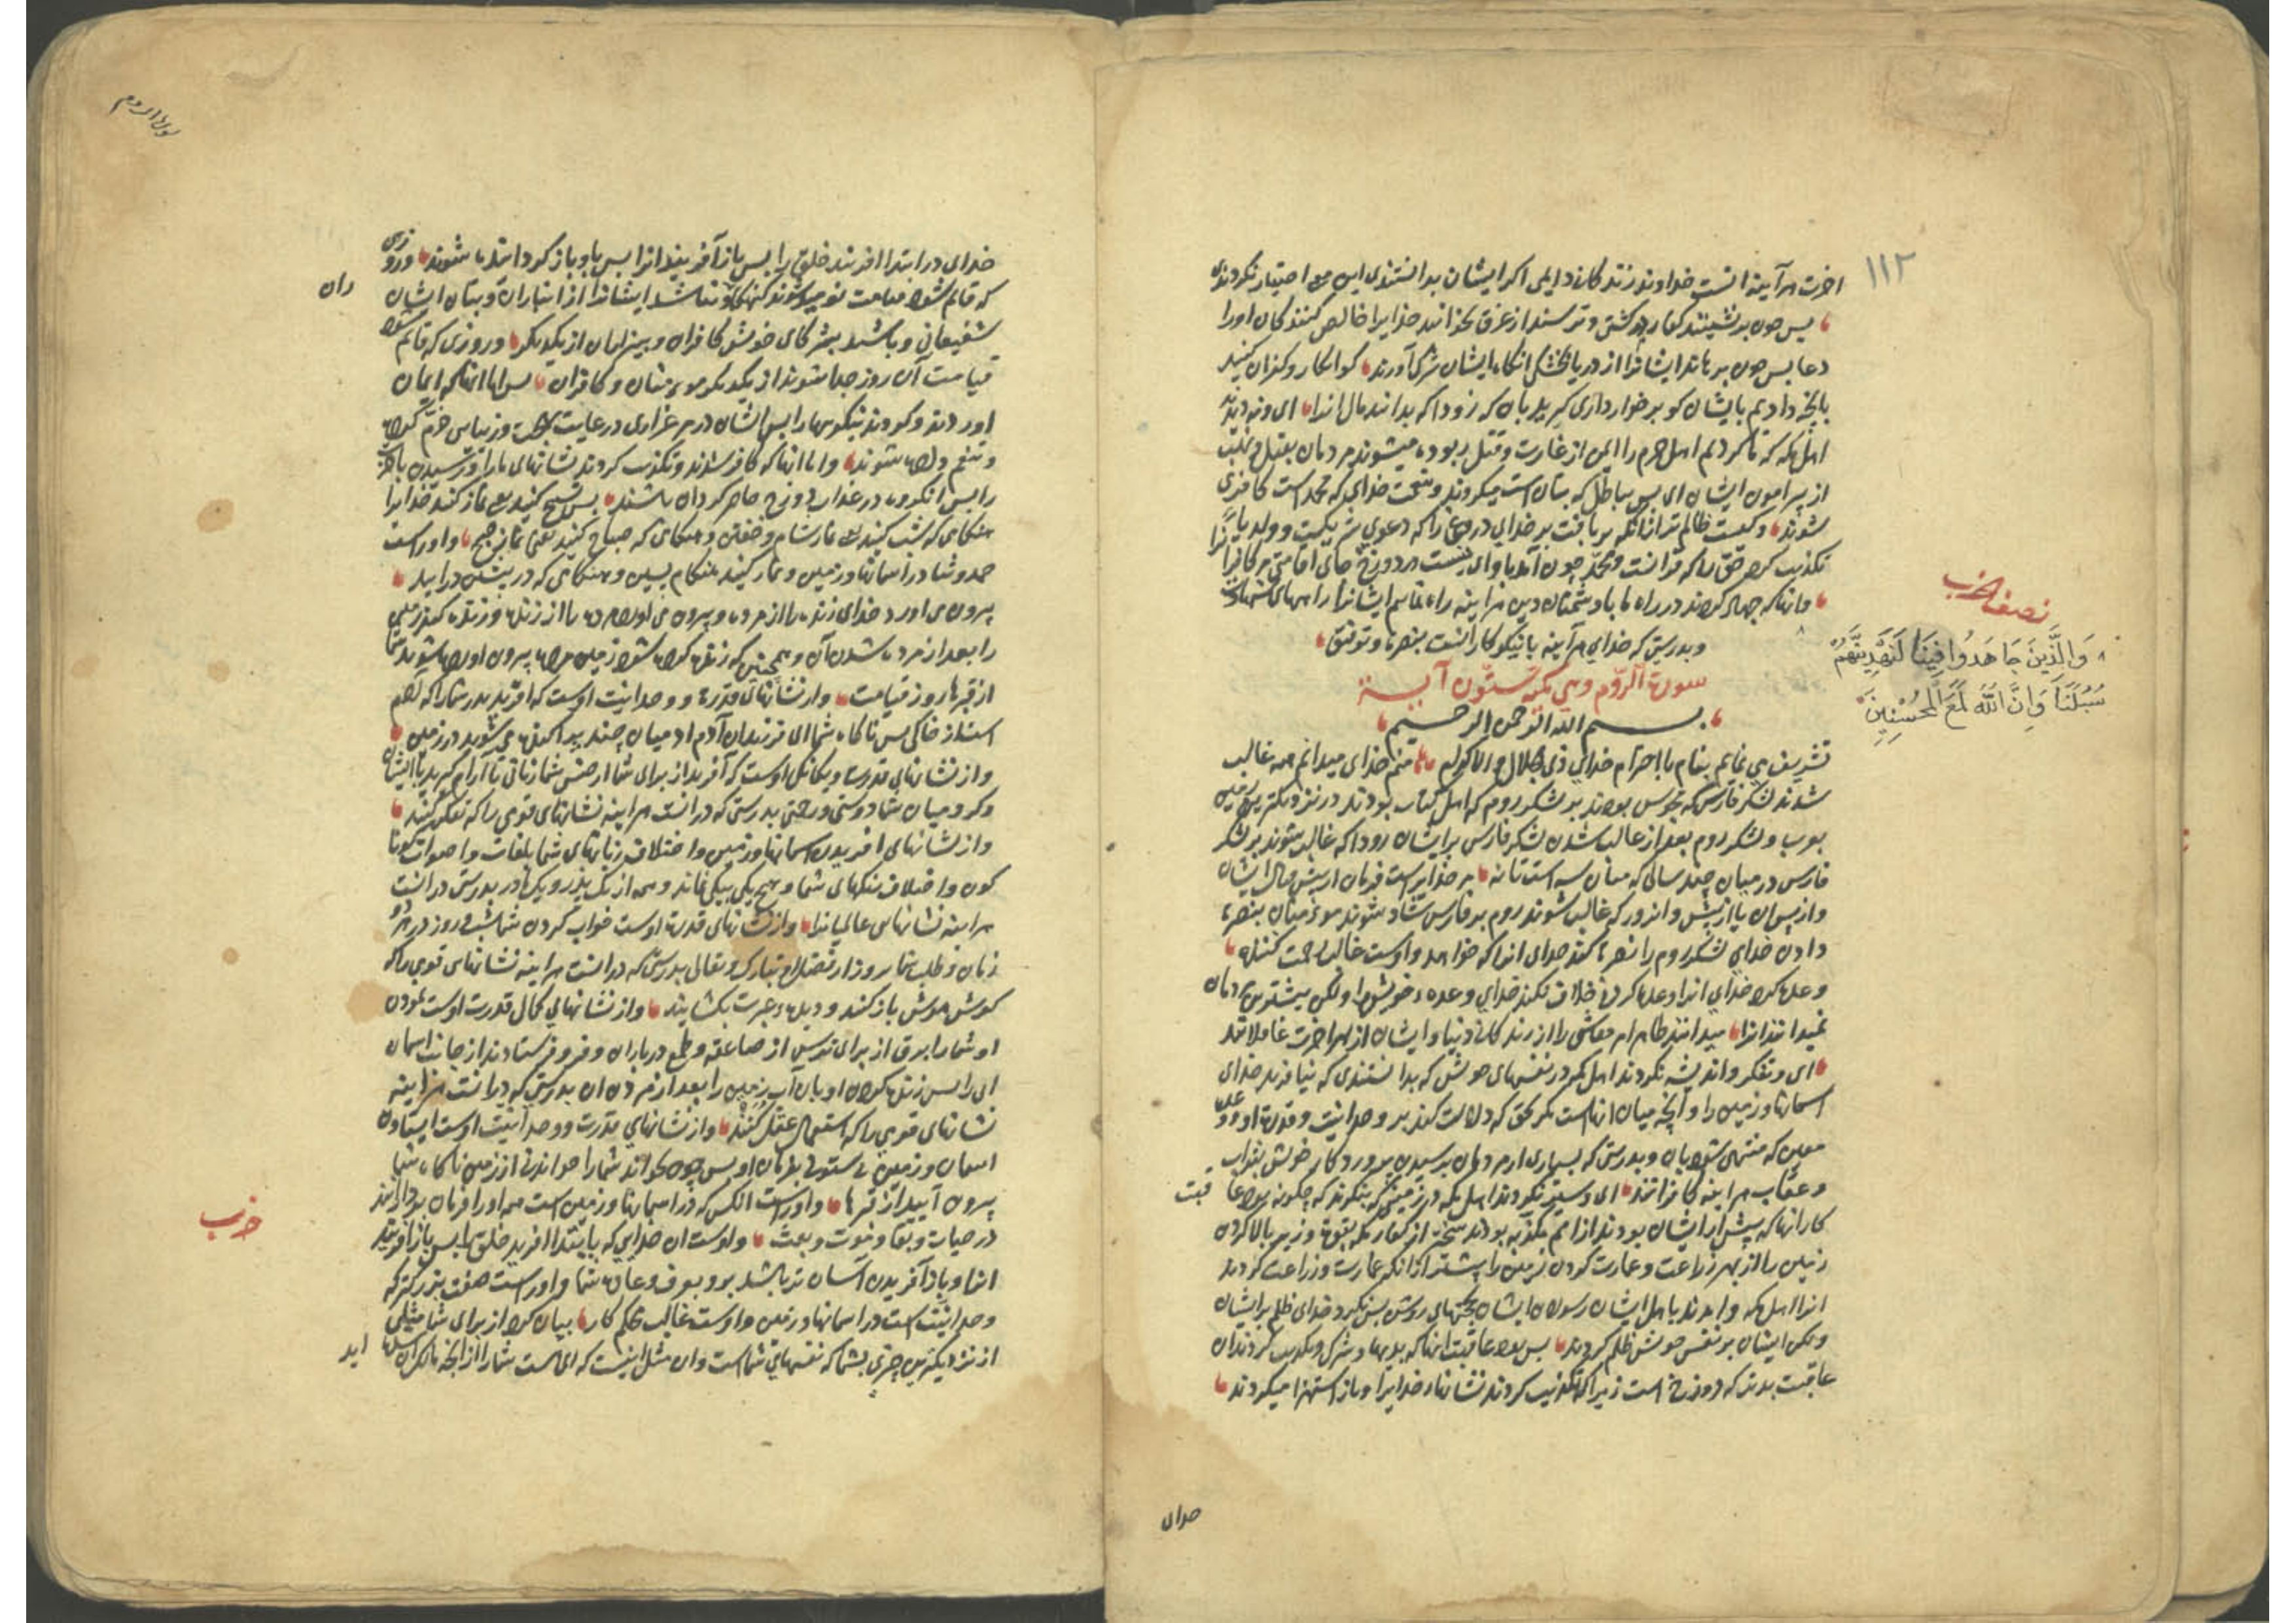 ۱۱۲
اخرت هرآینه انست خداوند زندکانی دایمی اکر ایشان بدانستندی این معه اختیار نکردندی
پس چون برنشینند کفار در کشتی و ترسند از غرق بخوانند خدایرا خالص کنندکان اورا
دعا پس چون برهاند ایشانرا از دریا بخشکی انکاه ایشان شرک آورند کو انکار و کفران کنید
بانچه دادیم بایشان کو برخورداری کیرید بان که زود اکه بدانند مال انرا ای و ندیدند
اهل مکه که ما کردیم اهل حرم را ایمن از غارت و قتل ربوده میشوند مردمان بقتل و نهب
از پیرامون ایشان ای پس بباطل که بتان است میکروند و بنعمت خدای که محمد است کافری
شوند و کیست ظالم تر ازانکه بر بافت بر خدای دروغ را که دعوی شریکیست و ولد یا انرا
تکذیب کرد حق را که قرانست و محمد چون آمد باو ای نیست در دوزخ جای اقامتی مر کافرانرا
وانها که جهاد کردند در راه ما با دشمنان دین هراینه راه نماییم ایشانرا راههای
وبدرستی که خدای هرآینه با نیکوکارانست بنصرة و توفیق
نصف الحزب
وَالَّذِينَ جَاهَدُوا فِينَا لَنَهْدِيَنَّهُمْ
سُبُلَنَا وَإِنَّ اللَّهَ لَمَعَ الْمُحْسِنِينَ
سورة الروم وهي مكية ستون آية
بسم الله الرحمن الرحيم
تشریف می نمایم بنام با احترام خدای ذی الجلال والاکرام منم خدای میدانم همه غالب
شدند لشکر فارس که مجوس بودند بر لشکر روم که اهل کتاب بودند در نزدیکترین زمین
بعرب و لشکر روم بعد از غالب شدن لشکر فارس بر ایشان زود اکه غالب شوند بر لشکر
فارس در میان چند سالی که میان سه است تا نه مر خدایراست فرمان از پیش و مال ایشان
واز پس ان یا از پیش وانروز که غالب شوند روم بر فارس شاد شوند مؤمنان بنصرة
دادن خدای لشکر روم را نصرة کند خدای انرا که خواهد واوست غالب رحمت کننده
وعده کرد خدای انرا وعده کردنی خلاف نکند خدای وعده خویش را ولکن بیشترین مردمان
نمیدانند انرا میدانند ظاهر امر معاشی را از زندکانی دنیا وایشان از امر اخرت غافلانند
ای و تفکر واندیشه نکردند اهل مکه در نفسهای خویش که بدانستندی که نیافرید خدای
اسمانها وزمین را وآنچه میان انهاست مکر بحق که دلالت کند بر وحدانیت و قدرة او و وعده
معین که منتهی شود بان وبدرستی که بسیاری از مردمان برسیدن پروردکار خویش بثواب
وعقاب هراینه کافرانند ای و سیر نکردند اهل مکه در زمین که بنکرند که چکونه بود عا
قبت
کار انها که پیش از ایشان بودند از امم مکذبه بودند سختر از کفار مکه بقوة وزیر بالا کردن
زمین را از بهر زراعت وعمارت کردن زمین را بیشتر ازانکه عمارت وزراعت کردند
انرا اهل مکه وامدند باهل ایشان رسولان ایشان بحجتهای روشن پس نکرد خدای ظلم بر ایشان
ولکن ایشان بر نفس خویش ظلم کردند پس بود عاقبت انها که بدیها و شرک و تکذیب کردند ان
عاقبت بدتر که دوزخ است زیرا که تکذیب کردند نشانهاء خدایرا وبان استهزا میکردند
خدای
سورة الروم
خدای در ابتدا افریند خلق را پس باز آفریند انرا پس باو باز کردانیده شوند وروزی
که قایم شود قیامت نومید شوند کنهکاران ونباشد ایشانرا از انبازان وبتان ایشان
شفیعانی وباشند بشرکای خویش کافران وبیزاران از یکدیکر وروزی که قایم شود
قیامت آن روز جدا شوند از یکدیکر مؤمنان وکافران پس اما انها که ایمان
اوردند وکردند نیکوییها را پس ایشان در مرغزاری درغایت بهجت وزیبایی خرم کرده
ومنعم داده شوند واما انها که کافر شدند وتکذیب کردند نشانهای ما را ورسیدن باخرت
را پس انکروه در عذاب دوزخ حاضر کردان باشند پس تسبیح کنید یعنی نماز کنید خدایرا
هنکامی که شب کنید یعنی نماز شام وخفتن وهنکامی که صباح کنید یعنی نماز صبح واوراست
حمد وثنا در اسمانها وزمین ونماز کنید هنکام پسین وهنکامی که در پیشین درایید
بیرون می اورد خدای زنده را از مرده وبیرون می اورد مرده را از زنده وزنده کند زمین
را بعد از مرده شدن آن وهمچنین که زنده کرده شود زمین مرده بیرون اورده شوید شما
از قبرها روز قیامت واز نشانهای قدرة ووحدانیت اوست که افرید پدر شما را که ادم
است از خاکی پس ناکاه شما ای فرزندان آدم ادمیان چند پیدا کنده می شوید در زمین
واز نشانهای قدرت ویکانکی اوست که آفرید از برای شما از جنس شما زنانی تا آرام کیرید با ایشان
وکرد میان شما دوستی ورحمتی بدرستی که درانست هراینه نشانهای قومی را که تفکر کنند
واز نشانهای افریدن اسمانها وزمین واختلاف زبانهای شما بلغات واصوات کونا
کون واختلاف رنکهای شما وهیچ یکی بیکی نماند وهمه از یک پدر ویک مادر بدرستی درانست
هراینه نشانهای عالمیانرا واز نشانهای قدرة اوست خواب کردن شما بشب وروز در هر دو
زمان وطلب شما روزی از فضل او تبارک وتعالی بدرستی که درانست هراینه نشانهای قومی را که
کوش هوش باز کنند ودیده عبرت بکشایند واز نشانهای کمال قدرت اوست نمودن
او شما را برق از برای ترس از صاعقه وطمع در باران وفرو فرستادند از جانب اسمان
ابی را پس زنده کردن او بان آب زمین را بعد از مردن ان بدرستی که درانست هراینه
نشانهای قومی را که استعمال عقل کنند واز نشانهای قدرت ووحدانیت اوست ایستادن
اسمان وزمین بی ستونی بفرمان او پس چون بخواند شما را خواندنی از زمین ناکاه شما
بیرون آیید از قبرها واوراست انکس که در اسمانها وزمین است همه اورا فرمان بردارانند
در حیات وبقا وموت وبعث واوست ان خدایی که بابتدا افرید خلق را پس باز افریند
انرا وباز آفریدن آسان تر باشد برو بعرف وعادة شما واوراست صفت بزرکتر که
وحدانیت است در اسمانها وزمین واوست غالب محکم کار بیان کرد از برای شما مثلی
از نزدیکترین چیزی بشما که نفسهای شماست وان مثل اینست که ای هست شما را از انچه مالک ان
حزب